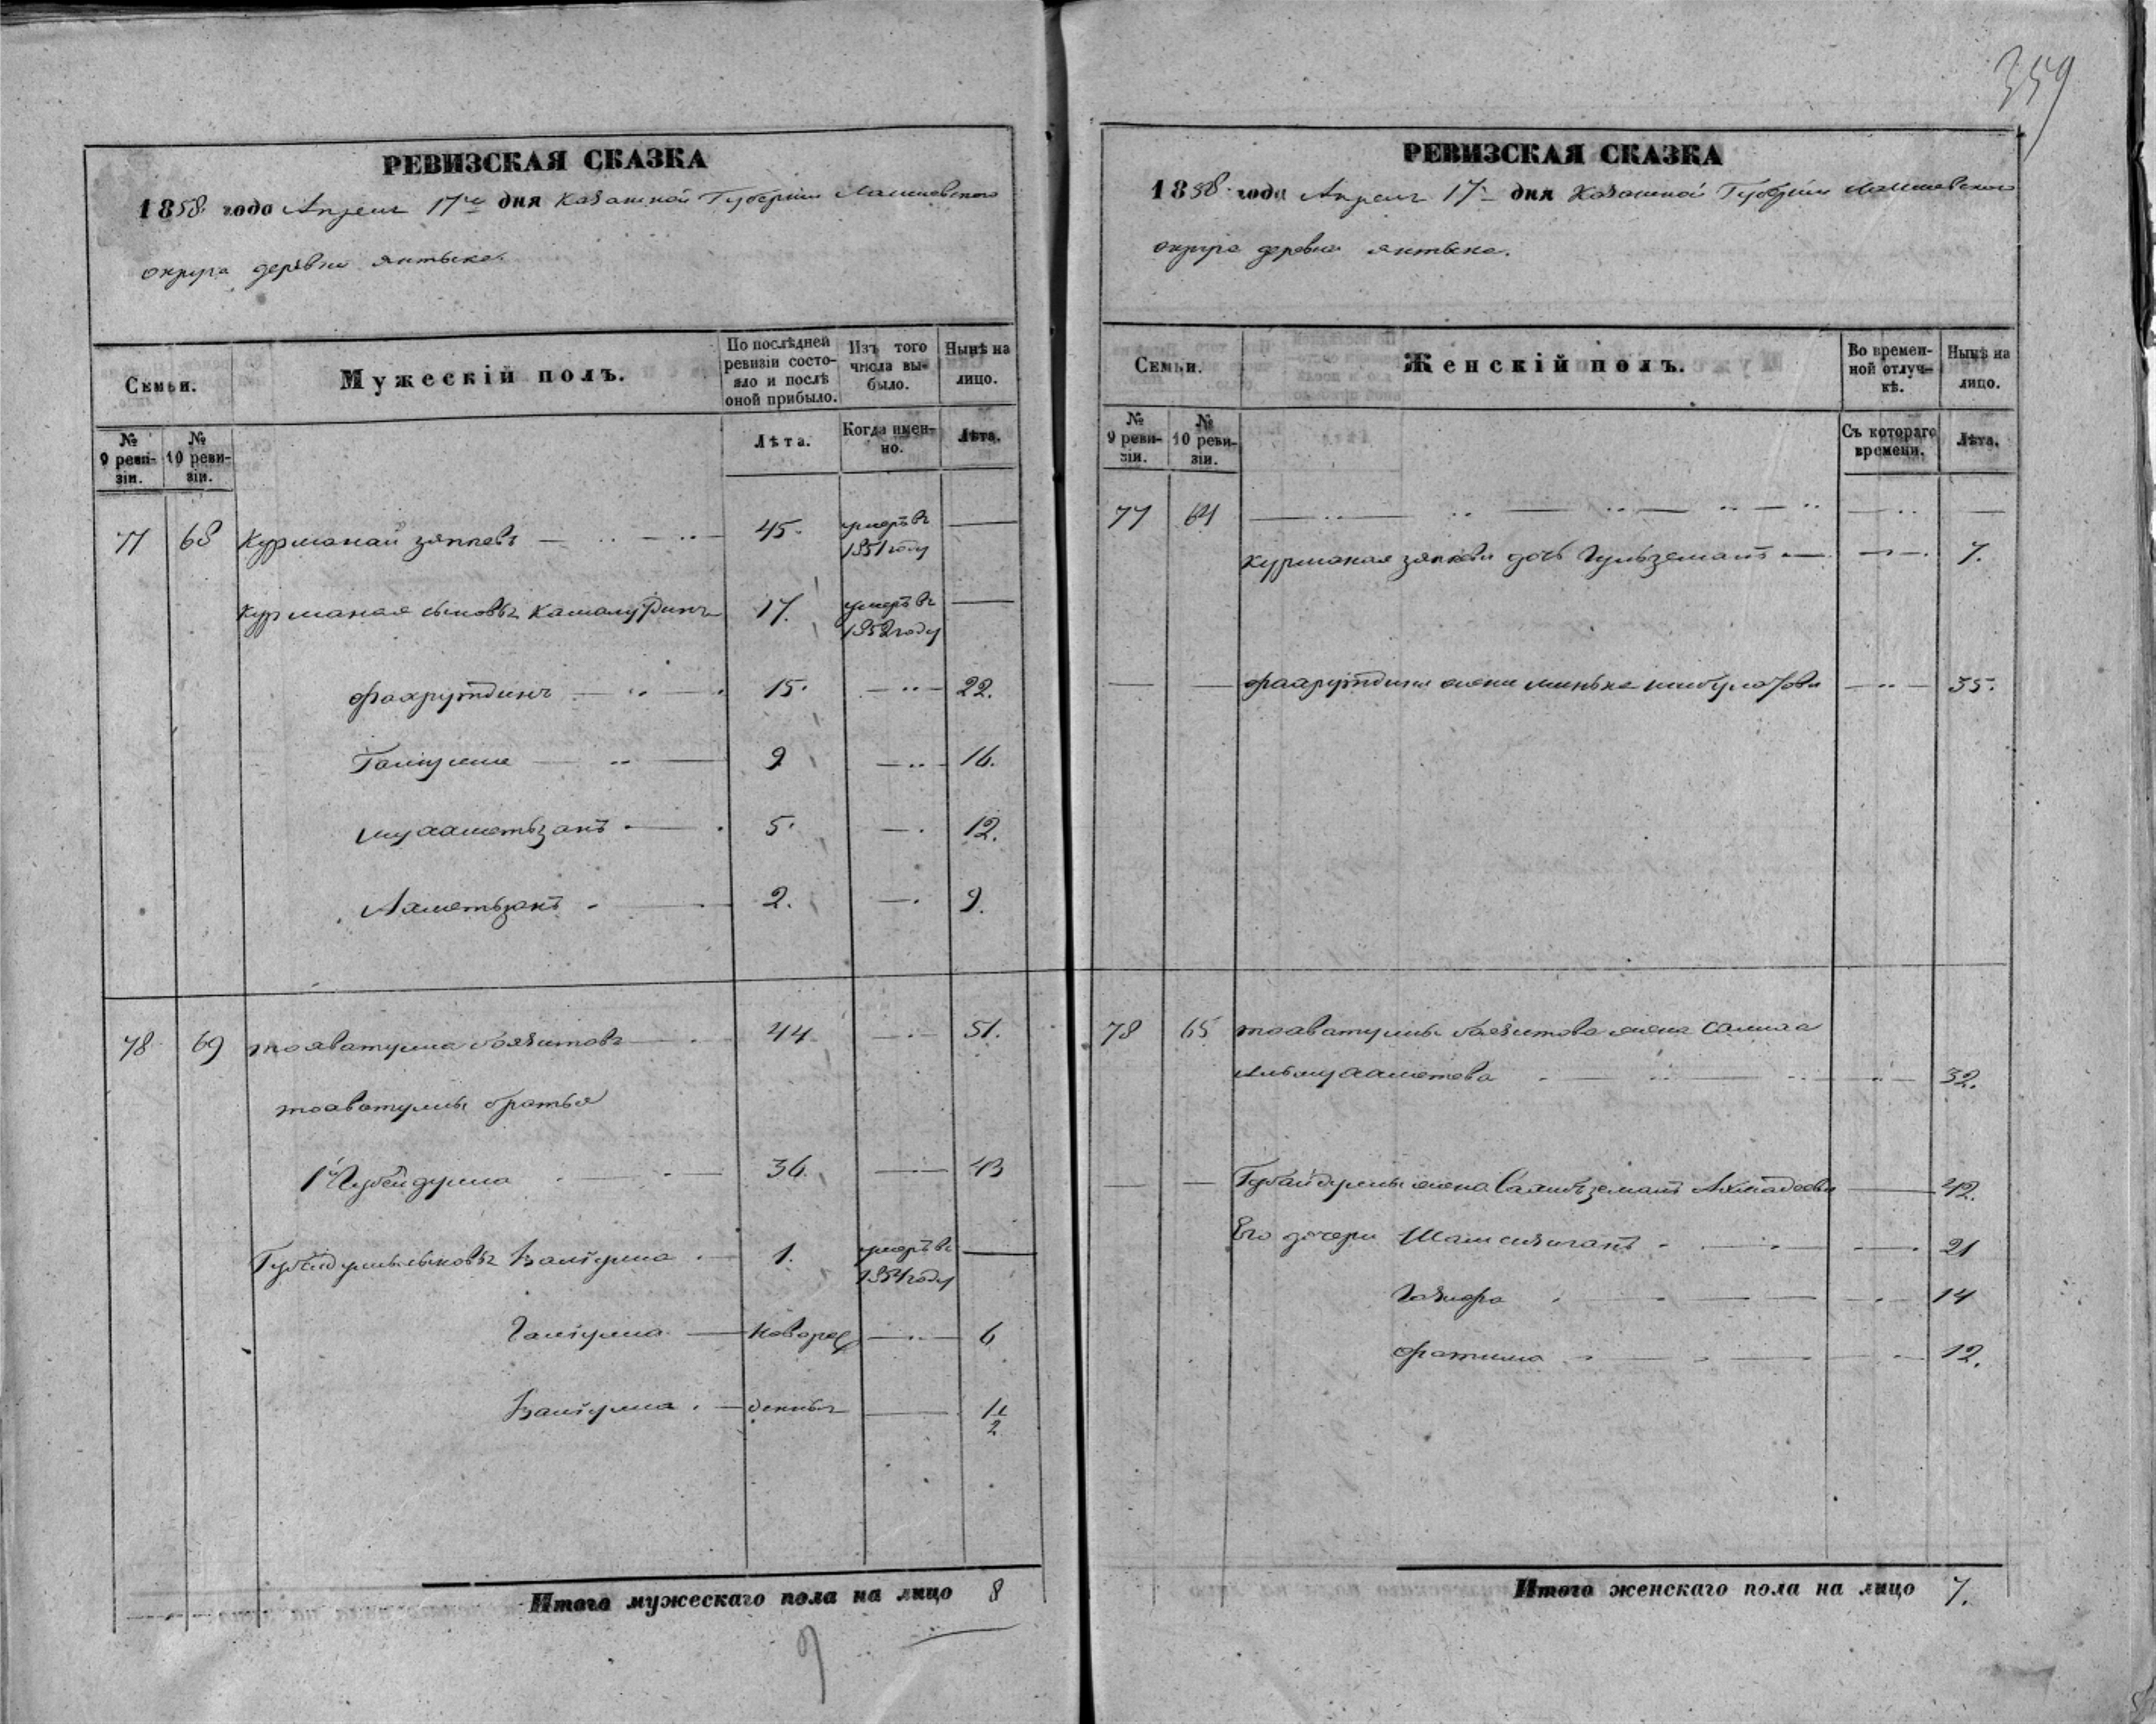 359
РЕВИЗСКАЯ СКАЗКА
1858 года Апреля 17го дня Казанской Губернiи Лаишевского
округа деревни Янтыка.
Семьи.
Мужескiй полъ.
По послѣдней ревизiи состо-
яло и послѣ оной прибыло.
Изъ того числа вы-
было.
Нынѣ на лицо.
№ 9 реви-
зiи.
№ 10 реви-
зiи.
Лѣта.
Когда имен-
но.
Лѣта.
77 68 Курманай Зяпкевъ 45. умеръ въ 1851 году
Курманая сыновья Камалутдинъ 17. умеръ въ 1852 году
Фахрутдинъ 15. 22.
9 16.
Мухаметьзянъ 5. 12.
Ахметьзянъ 2. 9.
78 69 Тохватулла Баязитовъ 44 51.
Тохватуллы братья
1й Губейдулла 36. 43
Губейдуллы сыновья Валiулла 1. умеръ въ 1851 году
Галiулла новорож 6
Валiулла 1 1/2
Итого мужескаго пола на лицо 8
9
РЕВИЗСКАЯ СКАЗКА
1858 года Апреля 17 дня Казанской Губернiи Лаишевского
округа деревни Янтыка.
Семьи.
Женскiй полъ.
Во времен-
ной отлуч-
кѣ.
Нынѣ на лицо.
№ 9 реви-
зiи.
№ 10 реви-
зiи.
Съ котораго времени.
Лѣта.
77 64
Курманая Зяпкева дочь Гульземалъ 7.
Фахрутдина жена 35.
78 65 Тохватуллы Баязитова жена Салиха
Альмухаметева 32.
Губайдуллы жена 42.
Его дочери 21
14
Фатима 12.
Итого женскаго пола на лицо 7.